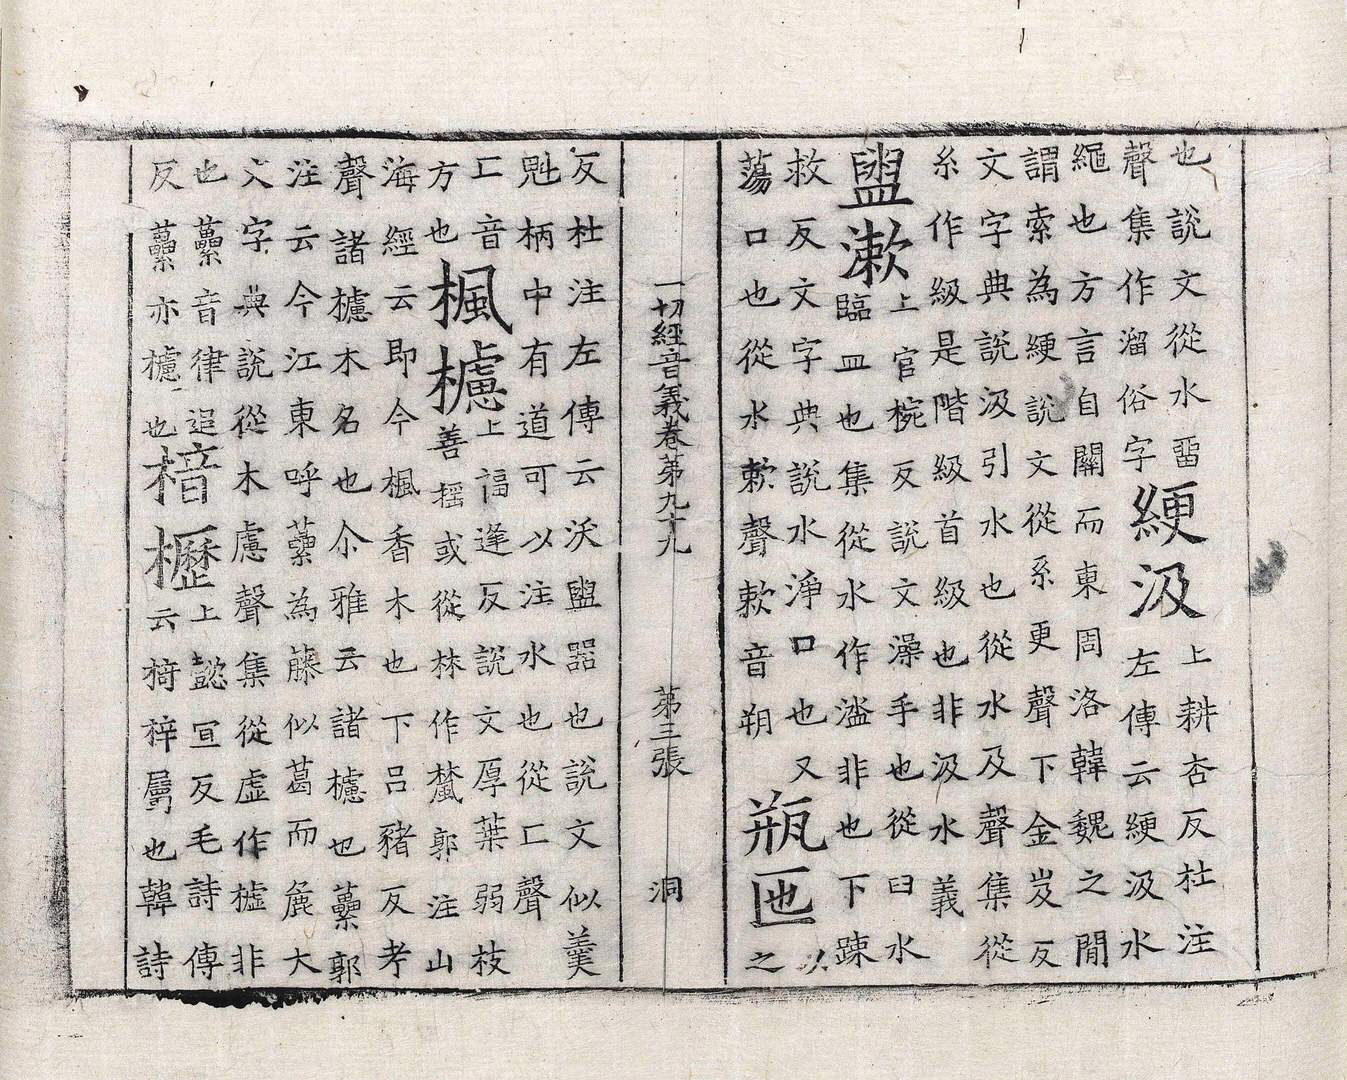 也說文從水畱
聲集作溜俗字綆汲上耕杏反杜注左傳云綆汲水
繩也方言自關而東周洛韓魏之閒
謂索為綆說文從系更聲下金岌反
文字典說汲引水也從水及聲集從
糸作級是階級首級也非汲水義
盥漱上官椀反說文澡手也從臼水臨皿也集從水作濫非也下踈
救反文字典說水淨口也又
蕩口也從水欶聲欶音朔瓶匜以之
一切經音義卷第九十九 第三張 洞
反杜注左傳云沃盥器也說文似羮
魁柄中有道可以注水也從匚聲
匚音方也楓櫖上福逢反說文厚葉弱枝善摇或從林作檒郭注山
海經云即今楓香木也下呂豬反考
聲諸櫖木名也尒雅云諸櫖也虆郭
注云今江東呼虆為藤似葛而麁大
文字典說從木慮聲集從虛作樝非
也虆音律追反虆亦櫖也楮櫪上懿宜反毛詩傳云椅梓屬也韓詩